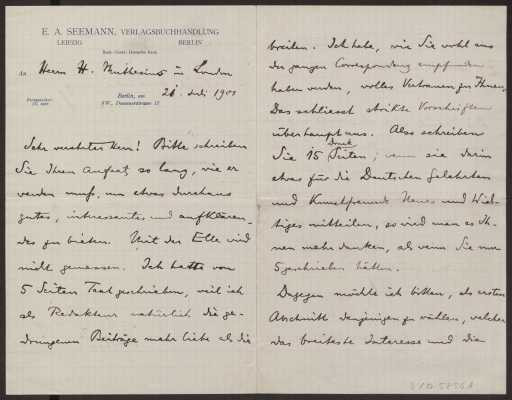 E. A. SEEMANN, VERLAGSBUCHHANDLUNG
LEIPZIG BERLIN
An Herrn H. Muthesius in London
Berlin, am 21. Juli 1901
SW., Dessauerstrasse 13
Sehr verehrter Herr! Bitte schreiben
Sie Ihren Aufsatz so lang, wie er
werden muß, um etwas durchaus
gutes, interessantes und aufklären-
des zu bieten. Mit der Elle wird
nicht gemessen. Ich hatte von
5 Seiten Text geschrieben, weil ich
als Redakteur natürlich die ge-
drungenen Beiträge mehr liebe als die
breiten. Ich habe, wie Sie wohl aus
der ganzen Correspondenz empfunden
haben werden, volles Vertrauen zu Ihnen.
Das schliesst strikte Vorschriften
überhaupt aus. Also schreiben
Sie 15 Druckseiten; wenn sie darin
etwas für die Deutschen Gelehrten
und Kunstfreunde Neues und Wich-
tiges mitteilen, so wird man es Ih-
nen mehr danken, als wenn Sie nur
5 geschrieben hätten.
Dagegen möchte ich bitten, als ersten
Abschnitt denjenigen zu wählen, welcher
das breiteste Interesse und die